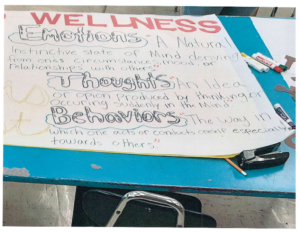 WELLNESS
Emotions: A Natural
Instinctive state of Mind deriving
from ones circumstance, mood or
relationships with others."
Thoughts "An Idea
or opion produced by thinking or
occuring suddenly in the Mind
Behaviors: "The way in
which one acts or conducts oneself especially
towards others."